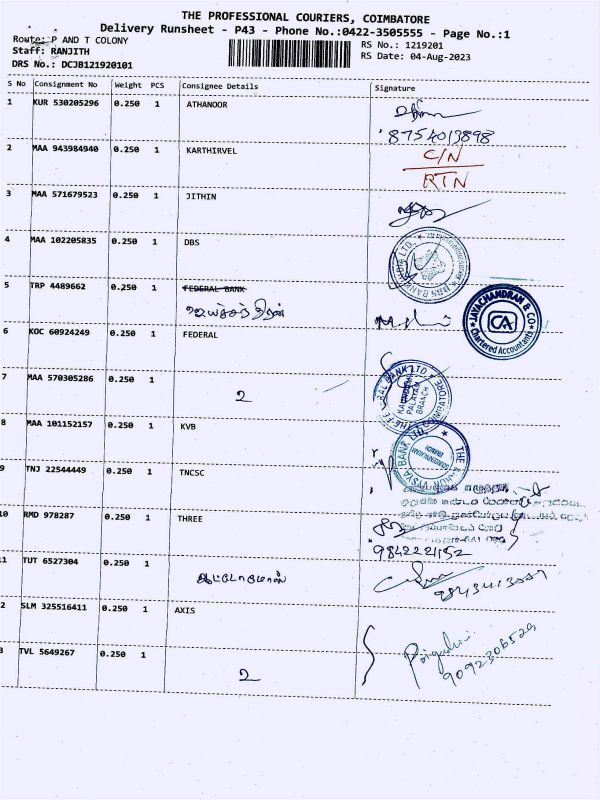 THE PROFESSIONAL COURIERS, COIMBATORE
Delivery Runsheet - P43 - Phone No.:0422-3505555 - Page No.:1
Route: P AND T COLONY
RS No.: 1219201
Staff: RANJITH
RS Date: 04-Aug-2023
DRS No.: DCJB121920101
S No Consignment No Weight PCS Consignee Details Signature
1 KUR 530205296 0.250 1 ATHANOOR
8754013898
2 MAA 943984940 0.250 1 KARTHIRVEL C/N
RTN
3 MAA 571679523 0.250 1 JITHIN
4 MAA 102205835 0.250 1 DBS
5 TRP 4489662 0.250 1 FEDERAL BANK
JAYACHANDRAN & CO
CA
Chartered Accountants
6 KOC 60924249 0.250 1 FEDERAL
7 MAA 570305286 0.250 1
2
BRANCH
8 MAA 101152157 0.250 1 KVB
9 TNJ 22544449 0.250 1 TNCSC
10 RMD 978287 0.250 1 THREE
11 TUT 6527304 0.250 1
2 SLM 325516411 0.250 1 AXIS
3 TVL 5649267 0.250 1
2
9092306529